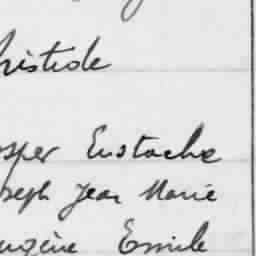 ristide
osper Eustache
seph Jean Marie
eugène Emile